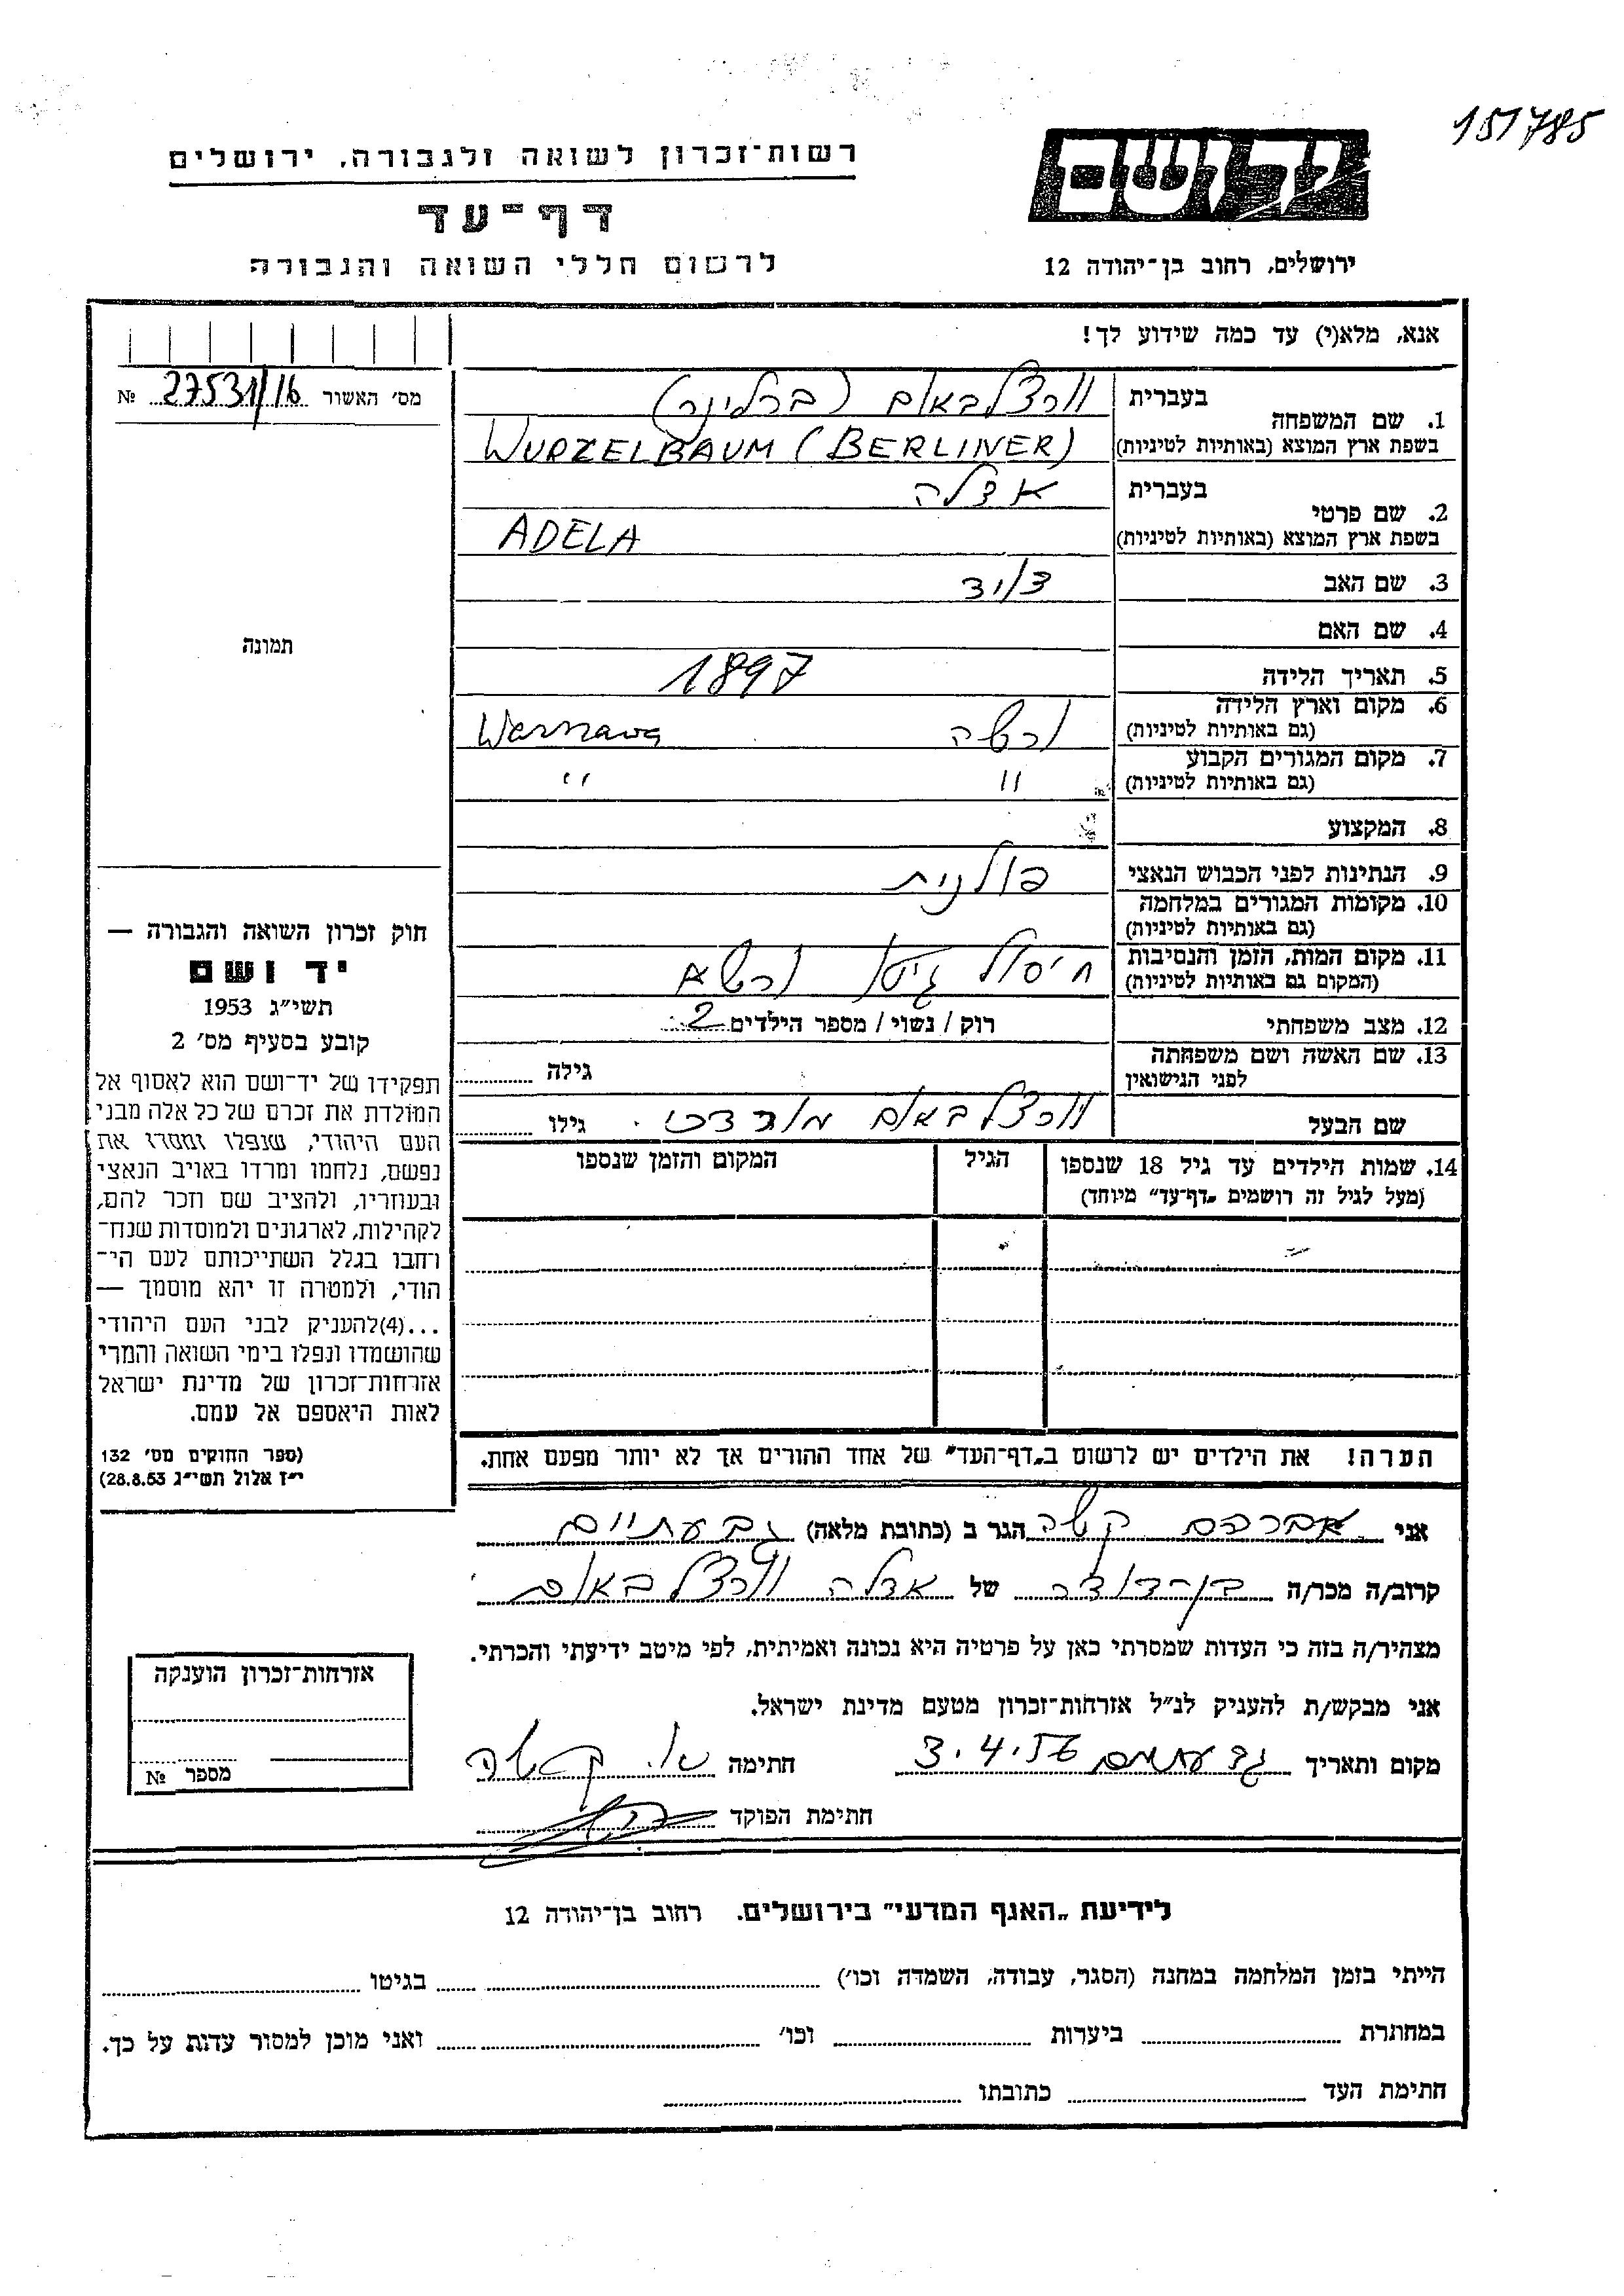 151785
יד ושם
רשות־זכרון לשואה ולגבורה, ירושלים
דף־עד
ירושלים, רחוב בן־יהודה 12
לרשום חללי השואה והגבורה
אנא, מלא(י) עד כמה שידוע לך!
מס׳ האשור 27531/16 №
1. שם המשפחה
בעברית וורצלבאום (ברלינר)
בשפת ארץ המוצא (באותיות לטיניות) WURZELBAUM (BERLINER)
2. שם פרטי
בעברית אדלה
בשפת ארץ המוצא (באותיות לטיניות) ADELA
3. שם האב דוד
4. שם האם
5. תאריך הלידה 1897
6. מקום וארץ הלידה
(גם באותיות לטיניות) ורשה Warszawa
7. מקום המגורים הקבוע
(גם באותיות לטיניות) " "
8. המקצוע
9. הנתינות לפני הכבוש הנאצי פולנית
10. מקומות המגורים במלחמה
(גם באותיות לטיניות)
11. מקום המות, הזמן והנסיבות
(המקום גם באותיות לטיניות) חיסול גיטו ורשא
12. מצב משפחתי רוק / נשוי / מספר הילדים 2
13. שם האשה ושם משפחתה
לפני הנישואין גילה
שם הבעל וורצלבאום מורדכי גילו
14. שמות הילדים עד גיל 18 שנספו הגיל המקום והזמן שנספו
(מעל לגיל זה רושמים „דף־עד” מיוחד)
תמונה
חוק זכרון השואה והגבורה —
יד ושם
תשי״ג 1953
קובע בסעיף מס׳ 2
תפקידו של יד־ושם הוא לאסוף אל
המולדת את זכרם של כל אלה מבני
העם היהודי, שנפלו ומסרו את
נפשם, נלחמו ומרדו באויב הנאצי
ובעוזריו, ולהציב שם וזכר להם,
לקהילות, לארגונים ולמוסדות שנח־
רבו בגלל השתייכותם לעם הי־
הודי, ולמטרה זו יהא מוסמך —
...(4)להעניק לבני העם היהודי
שהושמדו ונפלו בימי השואה והמרי
אזרחות־זכרון של מדינת ישראל
לאות היאספם אל עמם.
(ספר החוקים מס׳ 132
י״ז אלול תשי״ג 28.8.53)
הערה! את הילדים יש לרשום ב„דף־העד” של אחד ההורים אך לא יותר מפעם אחת.
אני אברהם קשה הגר ב (כתובת מלאה) גבעתיים
קרוב/ה מכר/ה בן־דודה של אדלה וורצלבאום
מצהיר/ה בזה כי העדות שמסרתי כאן על פרטיה היא נכונה ואמיתית, לפי מיטב ידיעתי והכרתי.
אני מבקש/ת להעניק לנ״ל אזרחות־זכרון מטעם מדינת ישראל.
מקום ותאריך גבעתיים 3.4.56 חתימה א. קשה
חתימת הפוקד
אזרחות־זכרון הוענקה
מספר №
לידיעת „האגף המדעי” בירושלים. רחוב בן־יהודה 12
הייתי בזמן המלחמה במחנה (הסגר, עבודה, השמדה וכו׳) בגיטו
במחתרת ביערות וכו׳ ואני מוכן למסור עדות על כך.
חתימת העד כתובתו